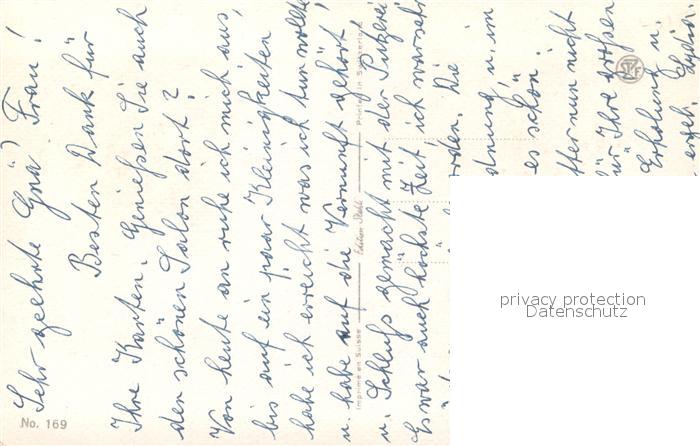 Sehr geehrte Gnä' Frau!
Besten Dank für
Ihre Karten. Genießen Sie auch
den schönen Salon dort?
Von heute an ruhe ich mich aus,
bis auf ein paar Kleinigkeiten
habe ich erreicht was ich tun wollte
u. habe auf die Vernunft gehört
u. Schluß gemacht mit der Putzerei
Es war auch höchste Zeit, ich war
Die
dnung u. im
es schön.
nun nicht
für Ihre großen
Erholung u.
No. 169
Imprimé en Suisse
Edition Stehli
Printed in Switzerland
privacy protection
Datenschutz